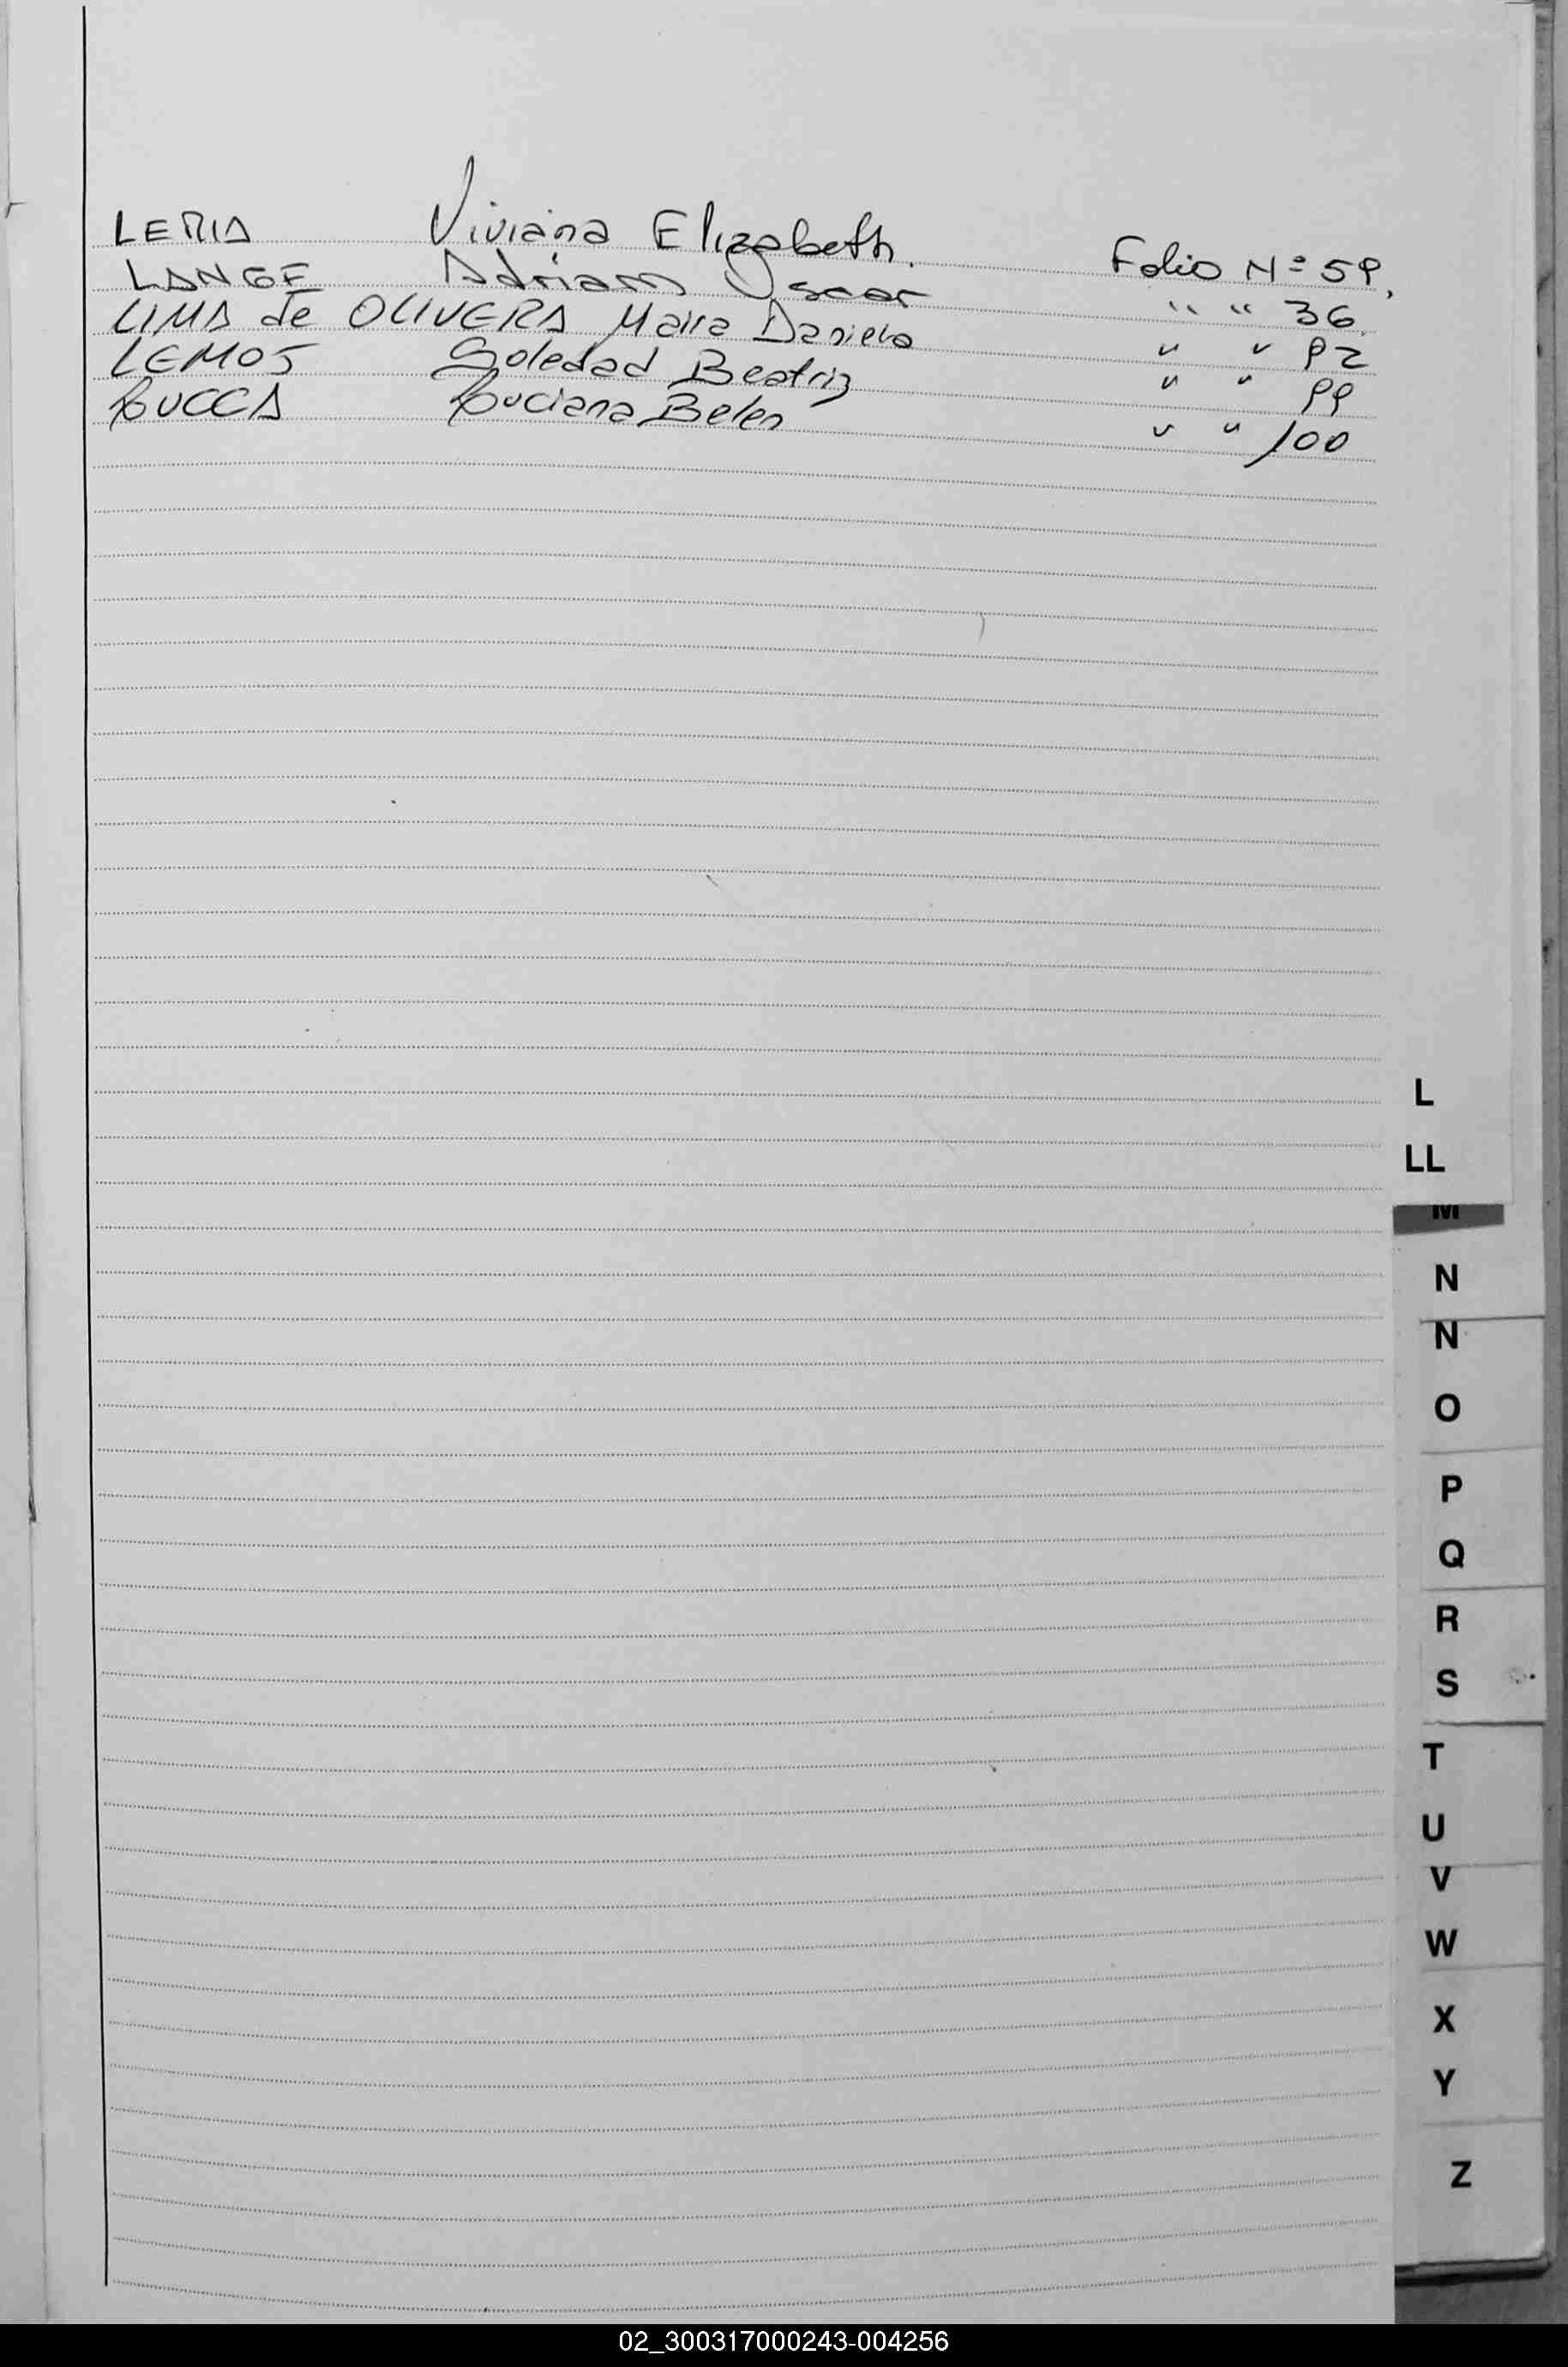 LERIA Viviana Elizabeth. Folio Nº 59,
LANGE Adrian Oscar " " 36.
LIMA de OLIVERA Maira Daniela " " 92
LEMOS Soledad Beatriz " " 99
LUCCA Luciana Belen " " 100
L
LL
M
N
N
O
P
Q
R
S
T
U
V
W
X
Y
Z
02_300317000243-004256